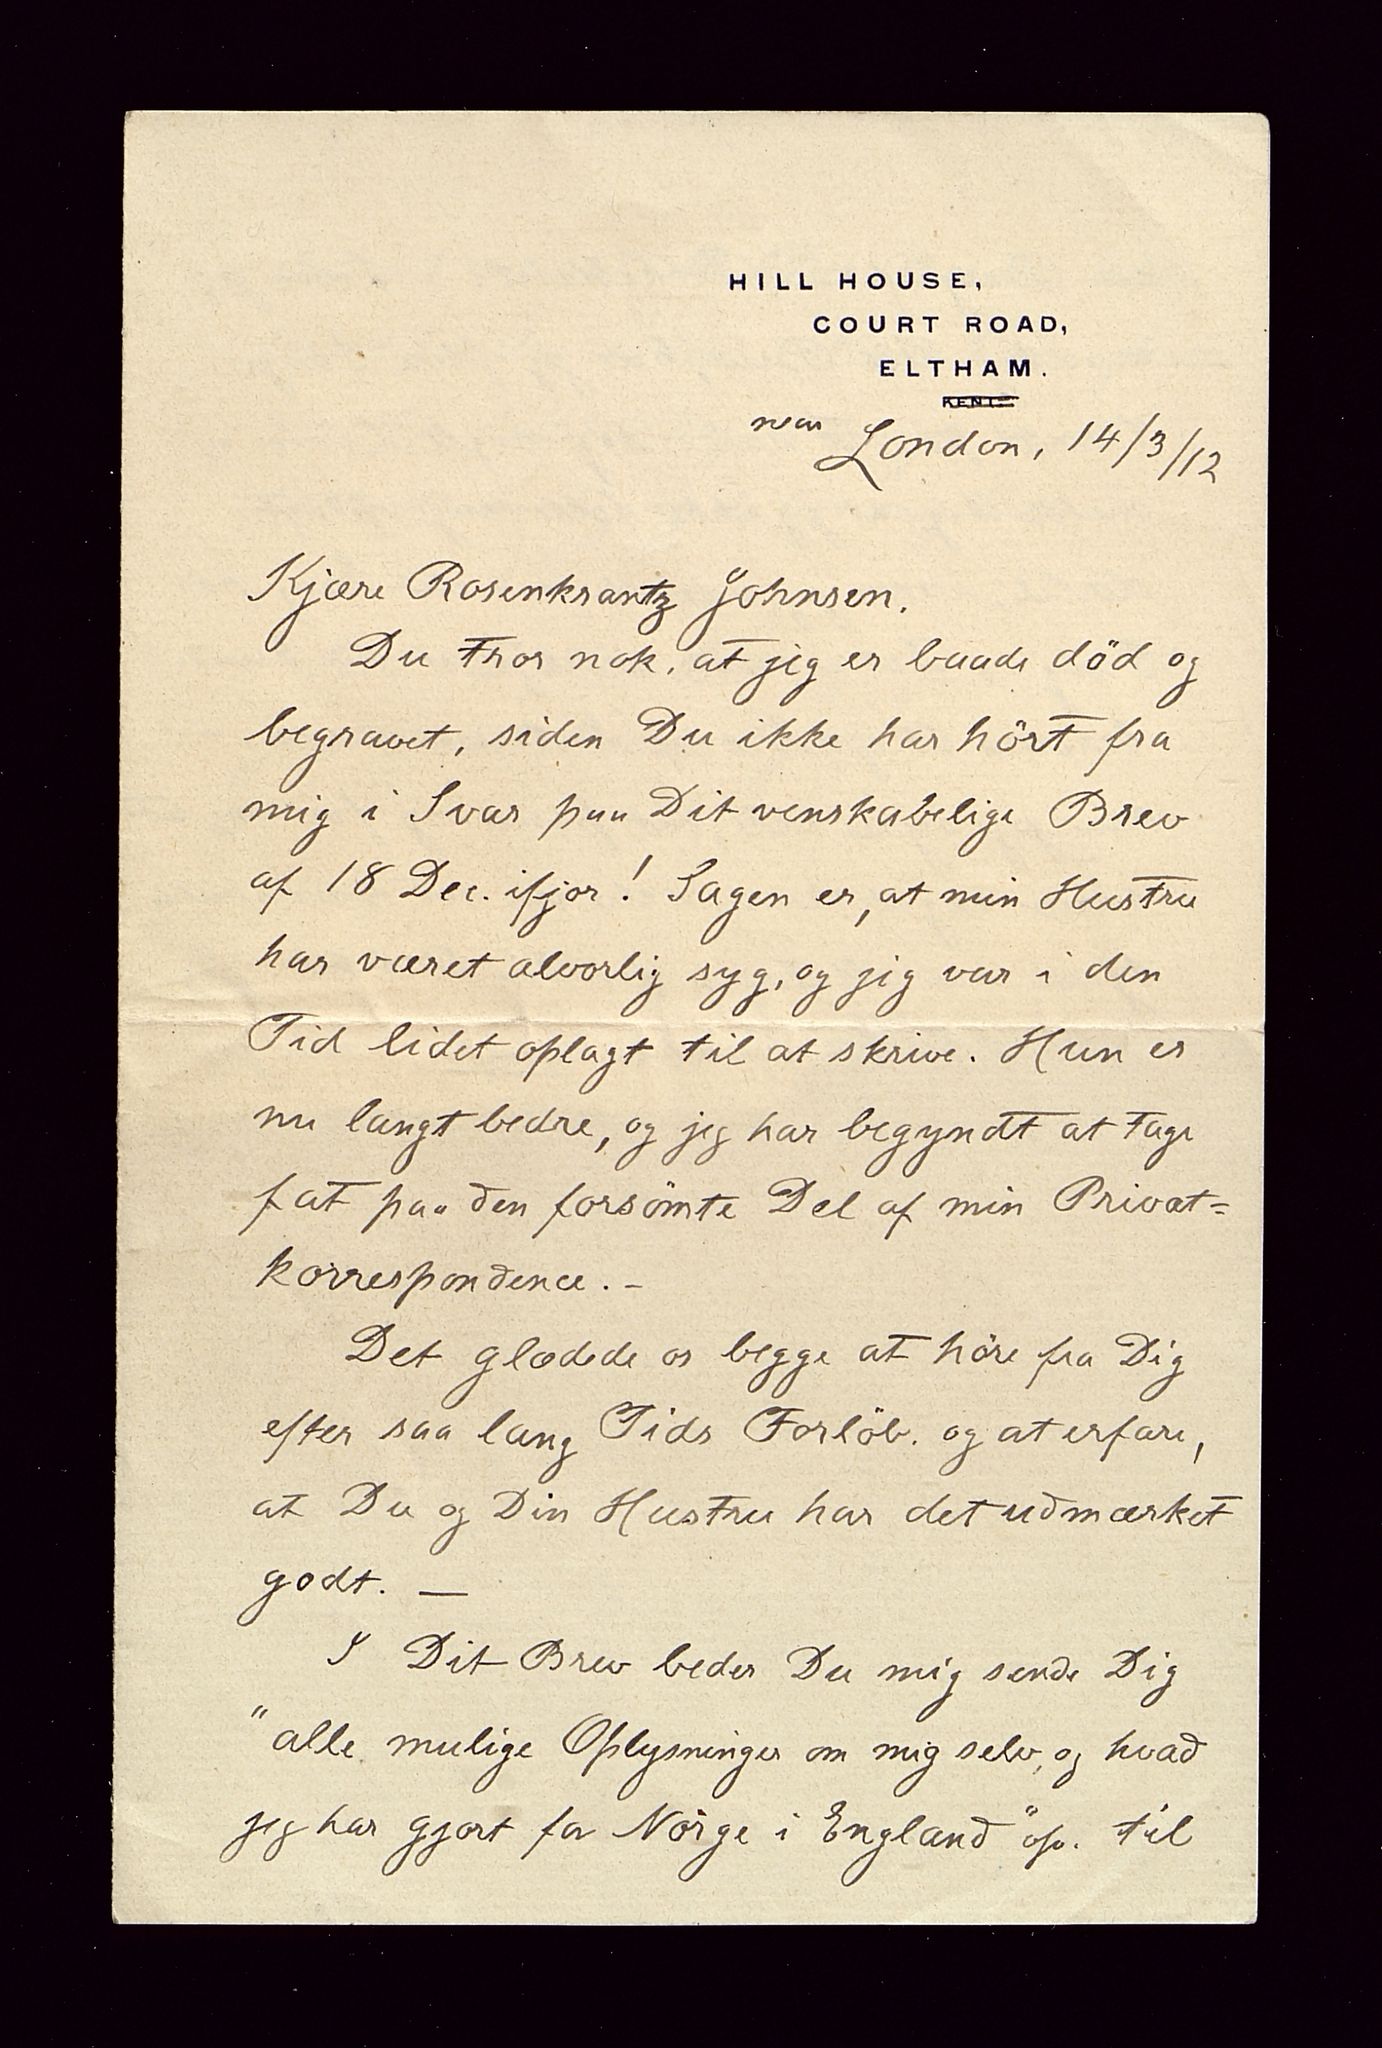 HILL HOUSE,
COURT ROAD,
ELTHAM.
KENT
near London, 14/3/12
Kjære Rosenkrantz Johnsen.
Du tror nok, at jeg er baade död og
begravet, siden Du ikke har hört fra
mig i Svar paa Dit venskabelige Brev
af 18 Dec. ifjor! Sagen er, at min Hustru
har været alvorlig syg, og jeg var i den
Tid lidet oplagt til at skrive. Hun er
nu langt bedre, og jeg har begyndt at tage
fat paa den forsömte Del af min Privat=
korrespondence. -
Det glædede os begge at höre fra Dig
efter saa lang Tids Forlöb, og at erfare,
at Du og Din Hustru har det udmærket
godt. —
I Dit Brev beder Du mig sende Dig
"alle mulige Oplysninger om mig selv, og hvad
jeg har gjort for Norge i England" op. til